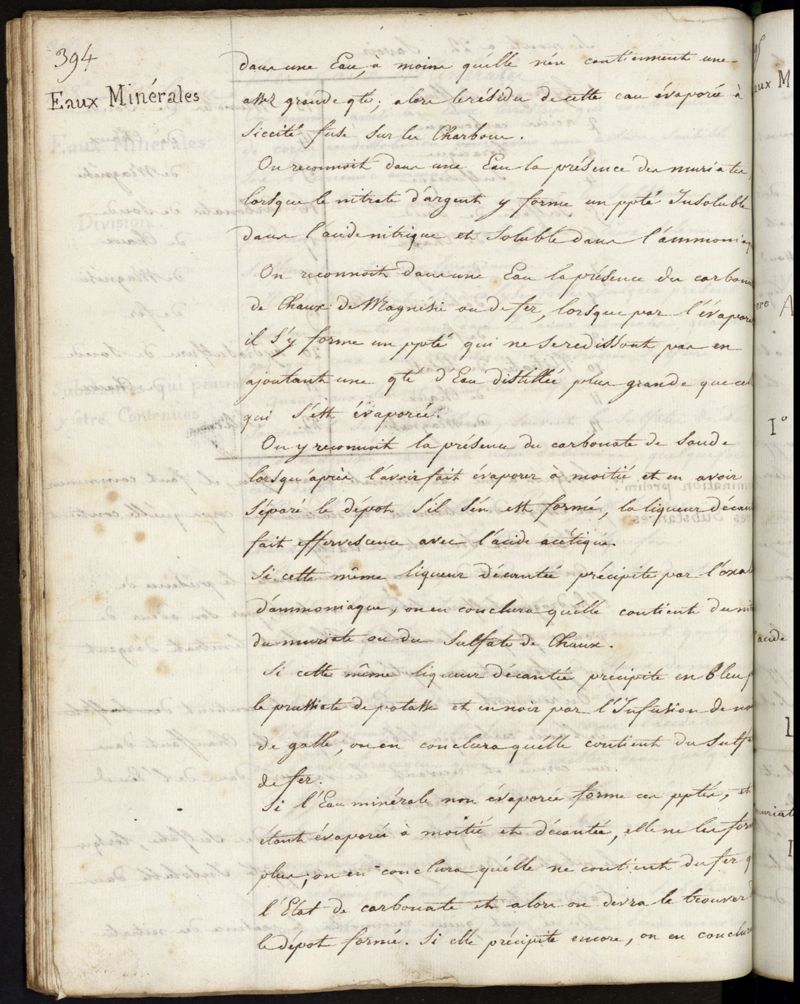 394
Eaux Minérales
dans une Eau, a moins quélle nén contiennent une
assez grande qté; alors le résidu de cette eau évaporée à
Siccité fuse sur les Charbons.
On reconnoit dans une Eau la présence des muriates,
lorsque le nitrate d'argent y forme un ppté Insoluble
dans l'acide nitrique et Soluble dans l'ammoniaq
On reconnoit dans une Eau la présence du carbona
de Chaux de Magnésie ou de fer, lorsque par l'évapora
il s'y forme un ppté qui ne se redissout pas en
ajoutant une qté d'Eau distillée plus grande que cel
qui s'est évaporée.
On y reconnoit la présence du carbonate de Soude
lorsqu'après l'avoir fait évaporer à moitié et en avoir
Séparé le dépot S'il S'en est formé, la liqueur décan
fait effervescence avec l'acide acétique.
Si cette même liqueur décantée précipite par l'oxa
d'ammoniaque, on en conclura quélle contient du nit
du muriate ou du Sulfate de Chaux.
Si cette même liqueur décantée précipite en Bleu p
le prussiate de potasse et en noir par l'Infusion de no
de galle, on en conclura quélle contient du Sulf
de fer.
Si l'Eau minérale non évaporée forme ces pptés, et
étant évaporée à moitié et décantée, elle ne les for
plus; on en conclura quélle ne contient du fer q
l'Etat de carbonate et alors on devra le trouver
le dépot formé. Si elle précipite encore, on en conclu